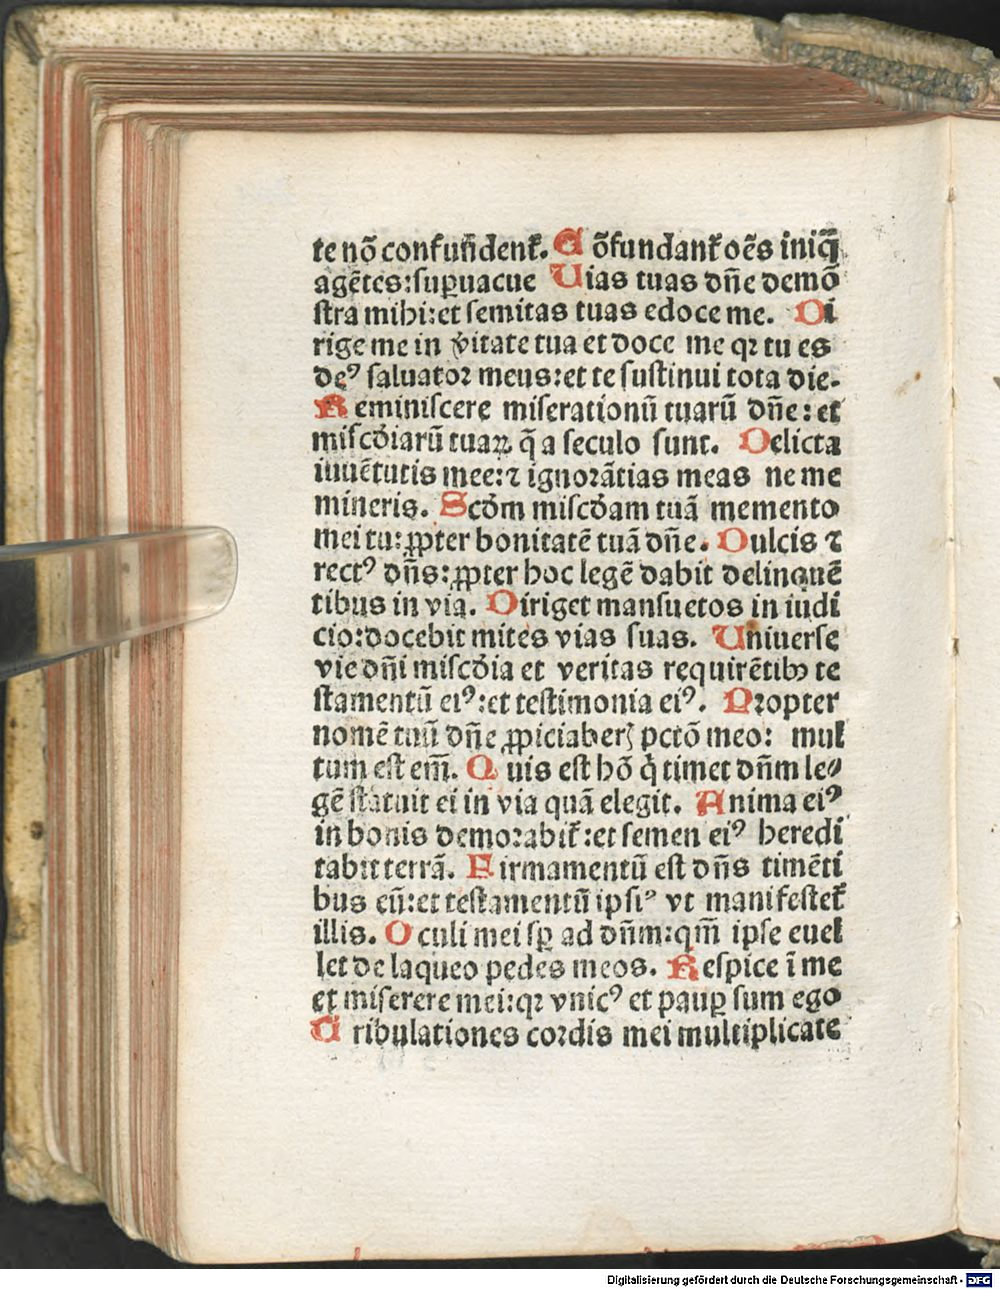 te nō confundentᷣ. Cōfundantᷣ oēs iniq̄
agētes: suꝑuacue Uias tuas dn̄e demō
stra mihi: et semitas tuas edoce me. Di
rige me in v̓itate tua et doce me qꝛ tu es
deꝰ saluator meus: et te sustinui tota die.
Reminiscere miserationū tuarū dn̄e: et
misc̄diarū tuaꝝ q̄ a seculo sunt. Delicta
iuuētutis mee: ⁊ ignorātias meas ne me
mineris. Scd̄m misc̄dam tuā memento
mei tu: ꝓpter bonitatē tuā dn̄e. Dulcis ⁊
rectꝰ dn̄s: ꝓpter hoc legē dabit delinquē
tibus in via. Diriget mansuetos in iudi
cio: docebit mites vias suas. Uniuerse
vie dn̄i misc̄dia et veritas requirētibꝰ te
stamentū eiꝰ: et testimonia eiꝰ. Propter
nomē tuū dn̄e ꝓpiciaberꝭ pctō meo: mul
tum est em̄. Quis est hō q̇ timet dn̄m le⸗
gē statuit ei in via quā elegit. Anima eiꝰ
in bonis demorabitᷣ: et semen eiꝰ heredi
tabit terrā. Firmamentū est dn̄s timēti
bus eū: et testamentū ipsiꝰ vt manifestetᷣ
illis. Oculi mei sꝑ ad dn̄m: qm̄ ipse euel
let de laqueo pedes meos. Respice ī me
et miserere mei: qꝛ vnicꝰ et pauꝑ sum ego
Tribulationes cordis mei multiplicate
Digitalisierung gefördert durch die Deutsche Forschungsgemeinschaft - DFG